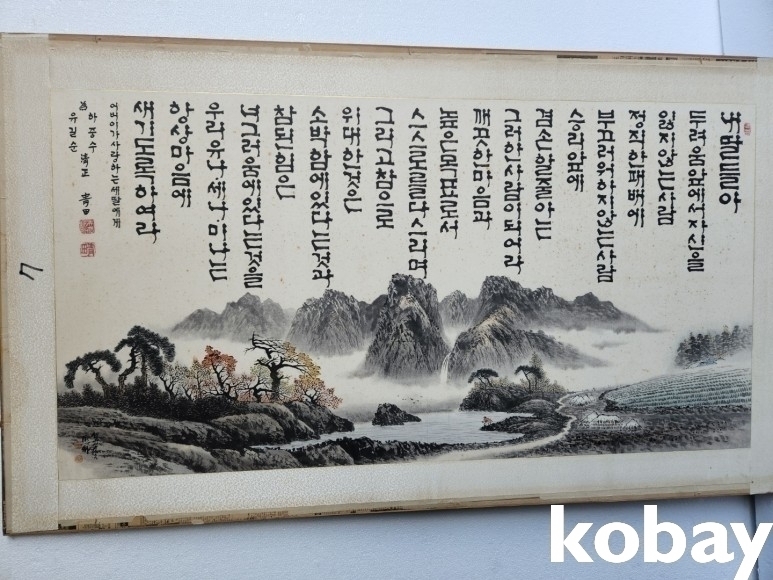 내딸들아
두려움앞에서자신을
잃지않는사람
정직한패배에
부끄러워하지않는사람
승리앞에
겸손할줄아는
그러한사람이되어라
깨끗한마음과
높은목표로서
스스로를다스리며
그리고참으로
위대한것은
소박함에있다는것과
참된힘은
너그러움에있다는것을
우리유나세나미나는
항상마음에
새기도록하여라
어버이가사랑하는세딸에게
爲 하풍수
유길순
7
kobay